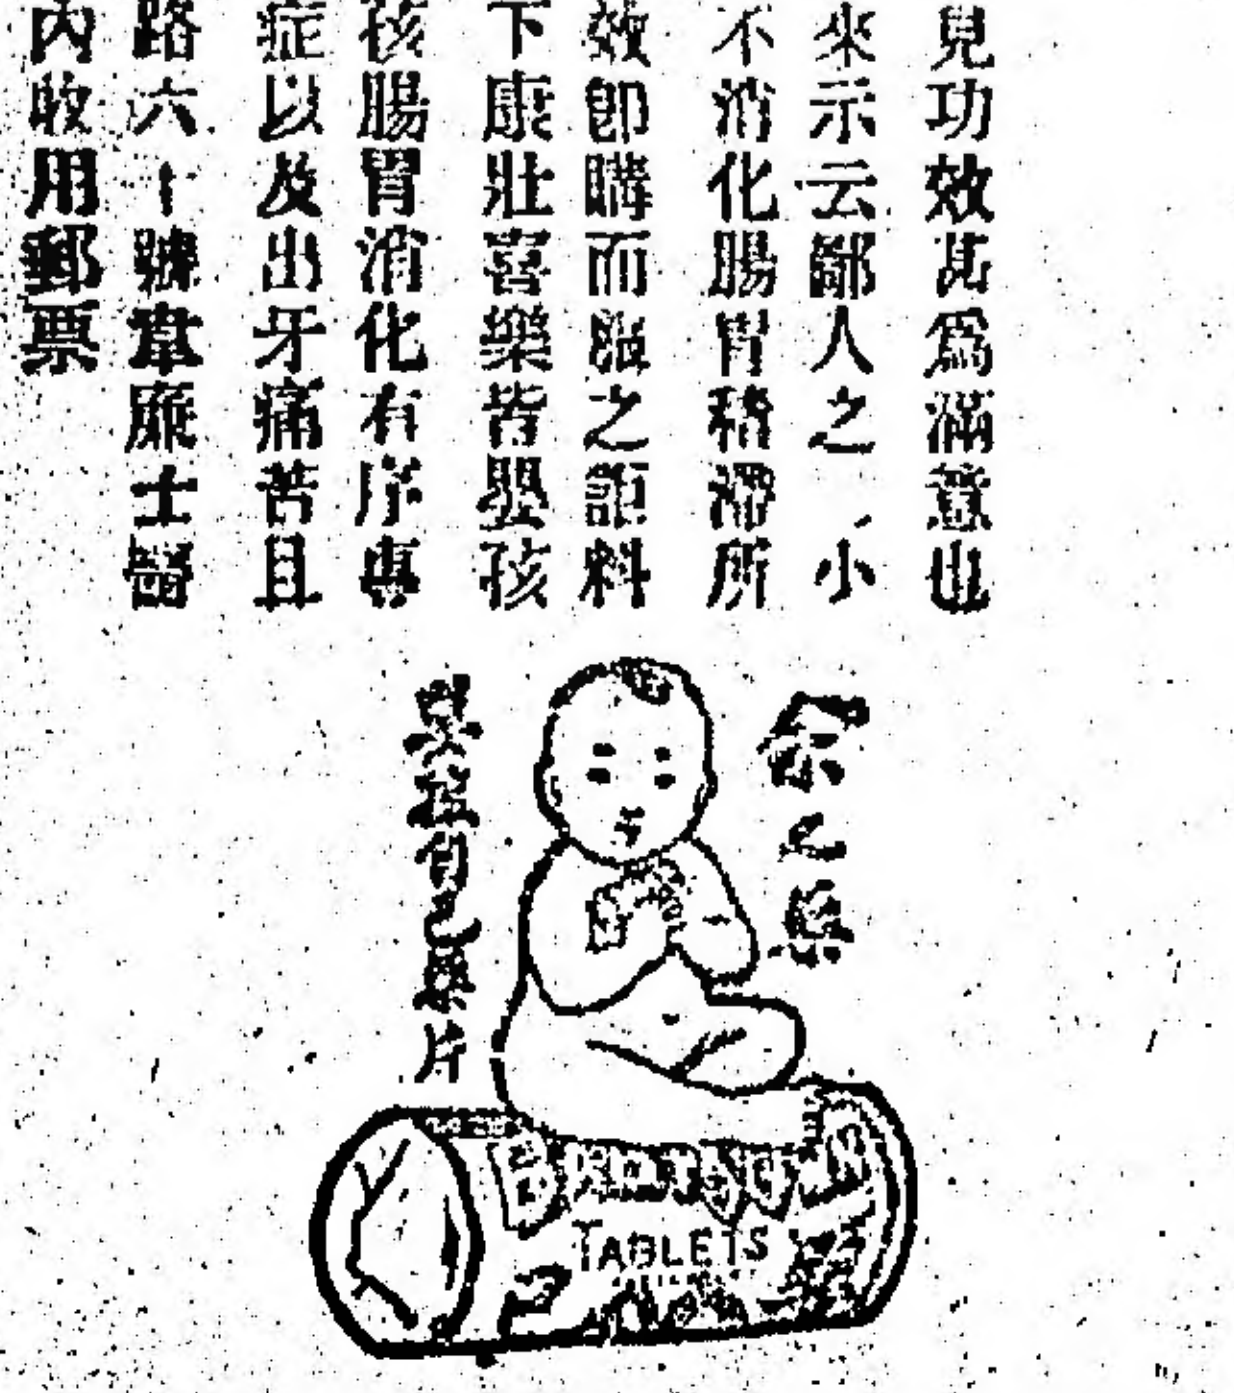 見功效甚為滿意也
來示云鄙人之小
不消化腸胃積滯所
效即購而服之詎料
下康壯喜樂皆嬰孩
孩腸胃消化有序專
症以及出牙痛苦且
路六十號韋廉士醫
內收用郵票
余之藥
嬰孩自己藥片
TABLETS